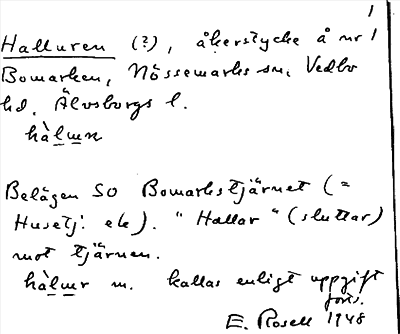 1
Halluren (?), åkerstycke å nr 1
Bomarken, Nössemarks sn, Vedbo
hd, Älvsborgs l.
hàlɯn
Belägen SO Bomarkstjärnet (=
Husetj: ek). "Hallar" (sluttar)
mot tjärnen.
hàlɯr m. kallas enligt uppgift
förr.
E. Rosell 1948